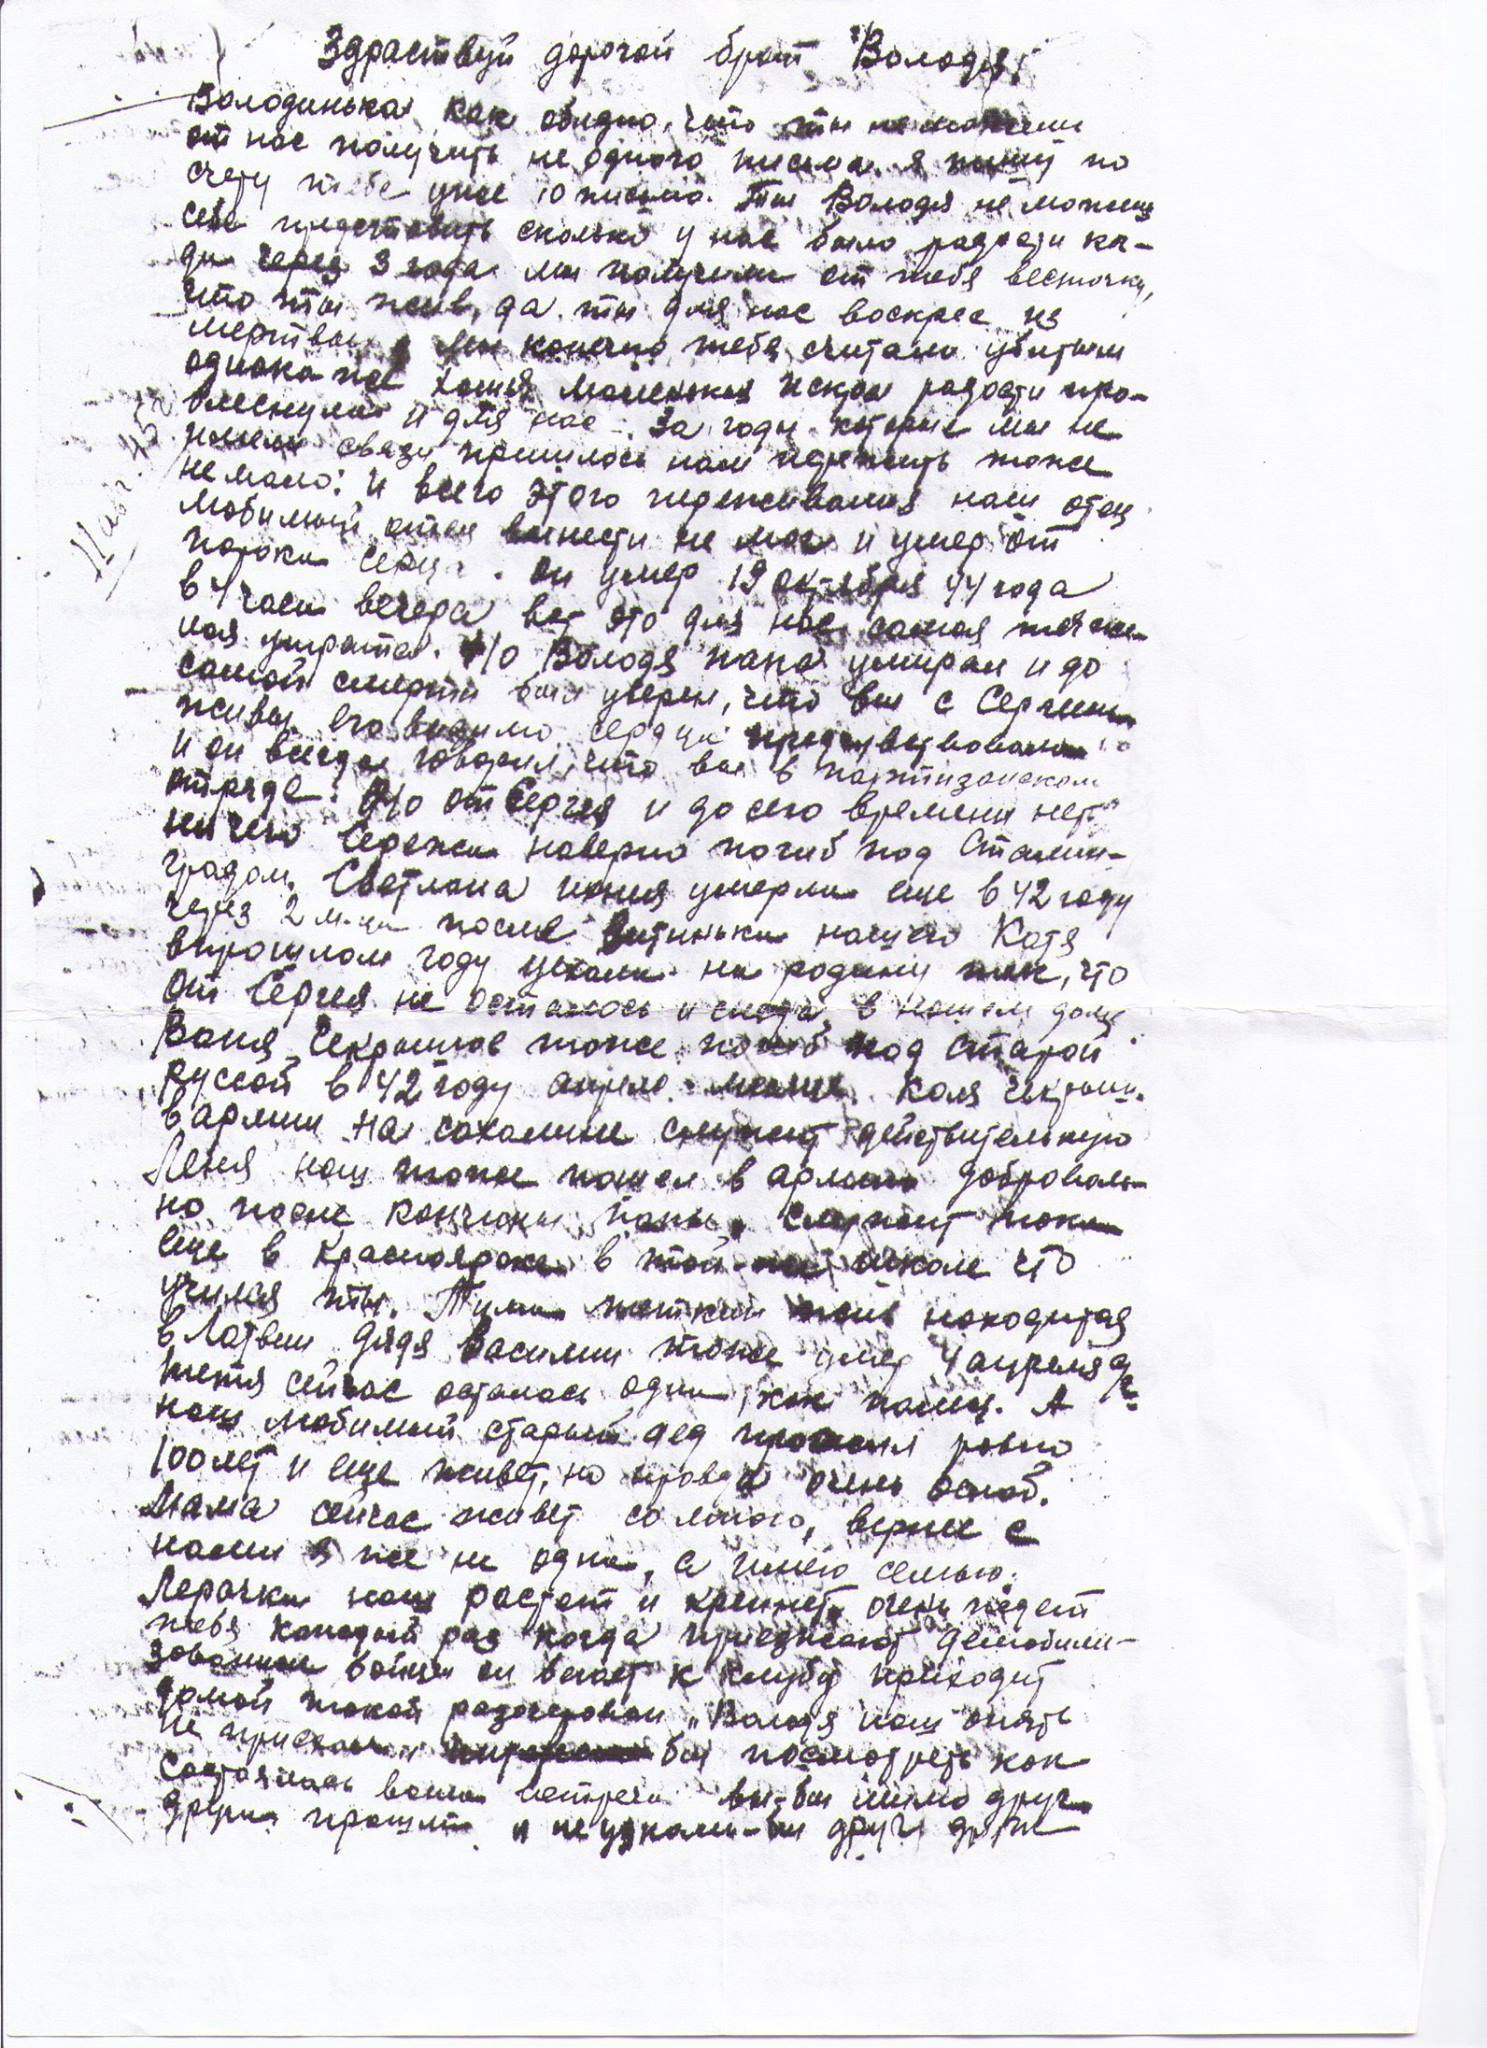 Здраствуй дорогой брат Володя!
Володинька как обидно, что ты не можеш
от нас получить не одного письма. я пишу по
счету тебе уже 10 письмо. Ты Володя не можеш
себе представить сколько у нас было радости ког-
да через 3 года мы получили от тебя весточку,
что ты жив, да ты для нас воскрес из
мертвых, мы конечно тебя считали убитым
однако же хотя маленькая искра радости про-
блеснула и для нас. За годы которые мы не
имели связи пришлось нам пережить тоже
не мало: и всего этого переживания наш отец
любимый отец вынести не мог и умер от
порока сердца. Он умер 19 октября 44 года
в 4 часа вечера вот это для нас самая тяже-
лая утрата. Но Володя папа умирал и до
самой смерти был уверен, что вы с Сергеем
живы его видимо сердце предчувствовало
и он всегда говорил, что вы в партизанском
отряде. Но от Сергея и до сего времени нет
ничего Сережа наверно погиб под Сталин-
градом. Светлана умерла еще в 42 году
через 2 м-ца после Витиньки нашего Катя
в прошлом году уехала на родину так, что
от Сергея не осталось и следа в нашем доме
Ваня Чекрыжов тоже погиб под Старой
Руссой в 42 году апреле месяце. Коля
в армии на сахалине служит действительную
Леня наш тоже пошел в армию доброволь-
но после кончины папы. Служит пока
еще в Красноярске в той-же школе что
учился ты. Тима жив находится
в Латвии дядя Василий тоже умер 4 апреля
тетя сейчас осталась одна, как палец. А
наш любимый старый дед прожил ровно
100 лет и еще живет, но правда очень ослаб.
Мама сейчас живет со мною, вернее с
нами я же не одна, а имею семью.
Лерочка наш растет и крепнет очень ждет
тебя каждый раз когда приезжают демобили-
зованные войны он бегает к клубу приходит
домой такой разочарован „Володя наш опять
не приехал" бы посмотреть как
состоялась ваша встреча вы-бы мимо друг
друга прошли и не узнали-бы друг друга
11 авг. 45 г.